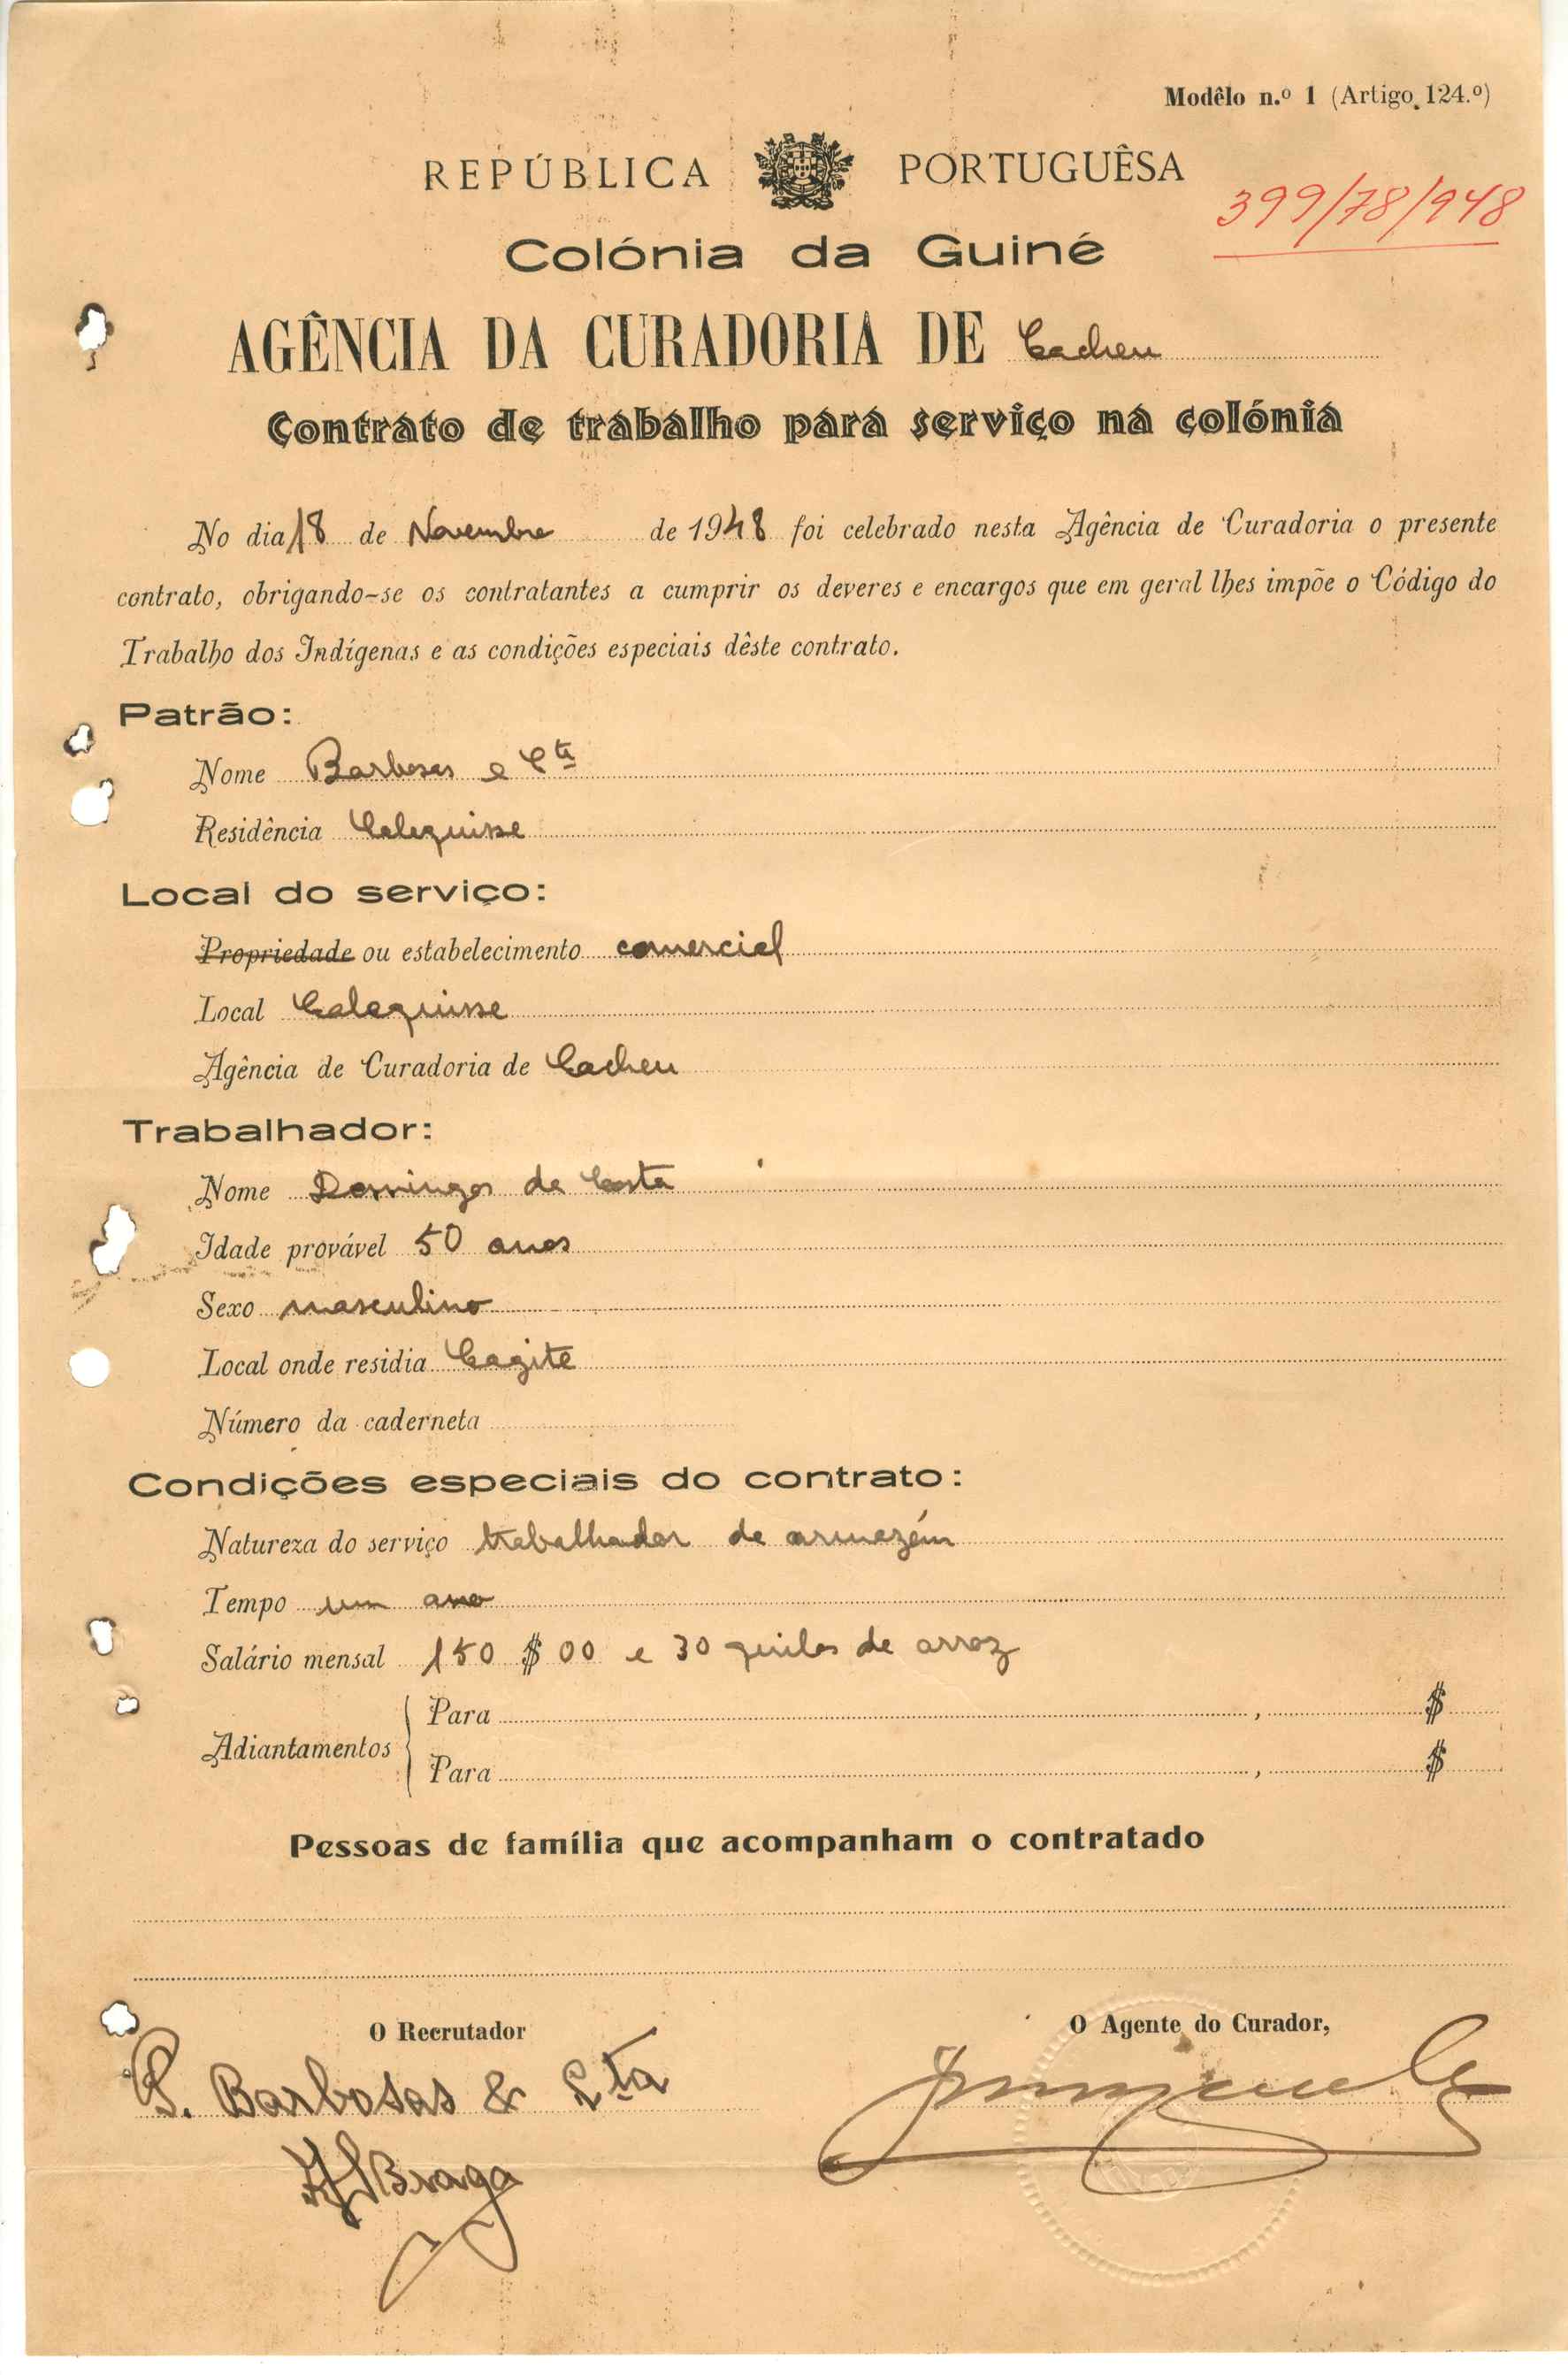 Modêlo n.º 1 (Artigo 124.º)
REPÚBLICA PORTUGUÊSA
399/78/948
Colónia da Guiné
AGÊNCIA DA CURADORIA DE Cacheu
Contrato de trabalho para serviço na colónia
No dia 18 de Novembro de 1948 foi celebrado nesta Agência de Curadoria o presente
contrato, obrigando-se os contratantes a cumprir os deveres e encargos que em geral lhes impõe o Código do
Trabalho dos Indígenas e as condições especiais dêste contrato.
Patrão:
Nome Barbosas e Cta
Residência Calequisse
Local do serviço:
Propriedade ou estabelecimento comercial
Local Calequisse
Agência de Curadoria de Cacheu
Trabalhador:
Nome Domingos da Costa
Idade provável 50 anos
Sexo masculino
Local onde residia Cagite
Número da caderneta
Condições especiais do contrato:
Natureza do serviço trabalhador de armazém
Tempo um ano
Salário mensal 150$00 e 30 quilos de arroz
Adiantamentos
Para , $
Para , $
Pessoas de família que acompanham o contratado
O Recrutador
O Agente do Curador,
P. Barbosas & Cta
Braga